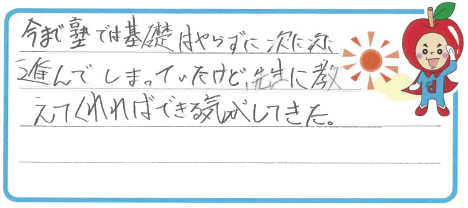 今まで塾では基礎はやらずに次に次に
進んでしまっていたけど、先生に教
えてくれればできる気がしてきた。